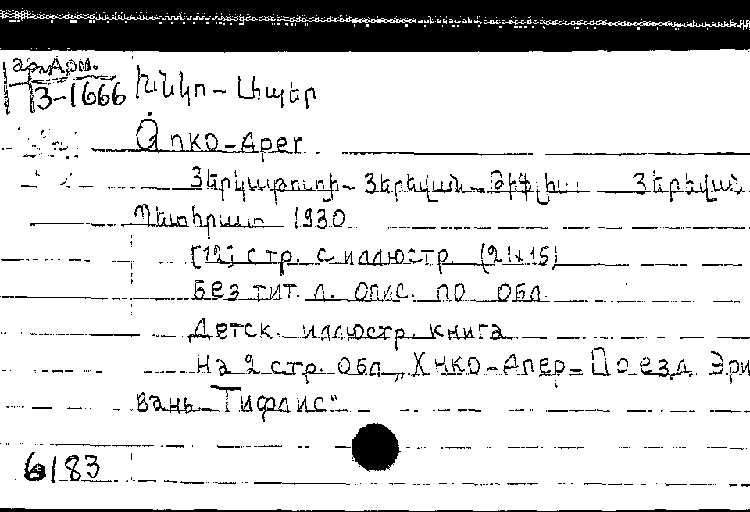 ар. Арм.
3-1666
Խնկո-Ապեր
Хnко-Aper
Երկաթուղի- Երեվան-Թիֆլիս Երեվան
Պետհրատ 1930
[12] стр. с иллюстр. (21x15)
Без тит. л. опис. по обл.
Детск. иллюстр. книга
На 2 стр. обл. „Хнко-Апер-Поезд Эри
вань-Тифлис"
6183